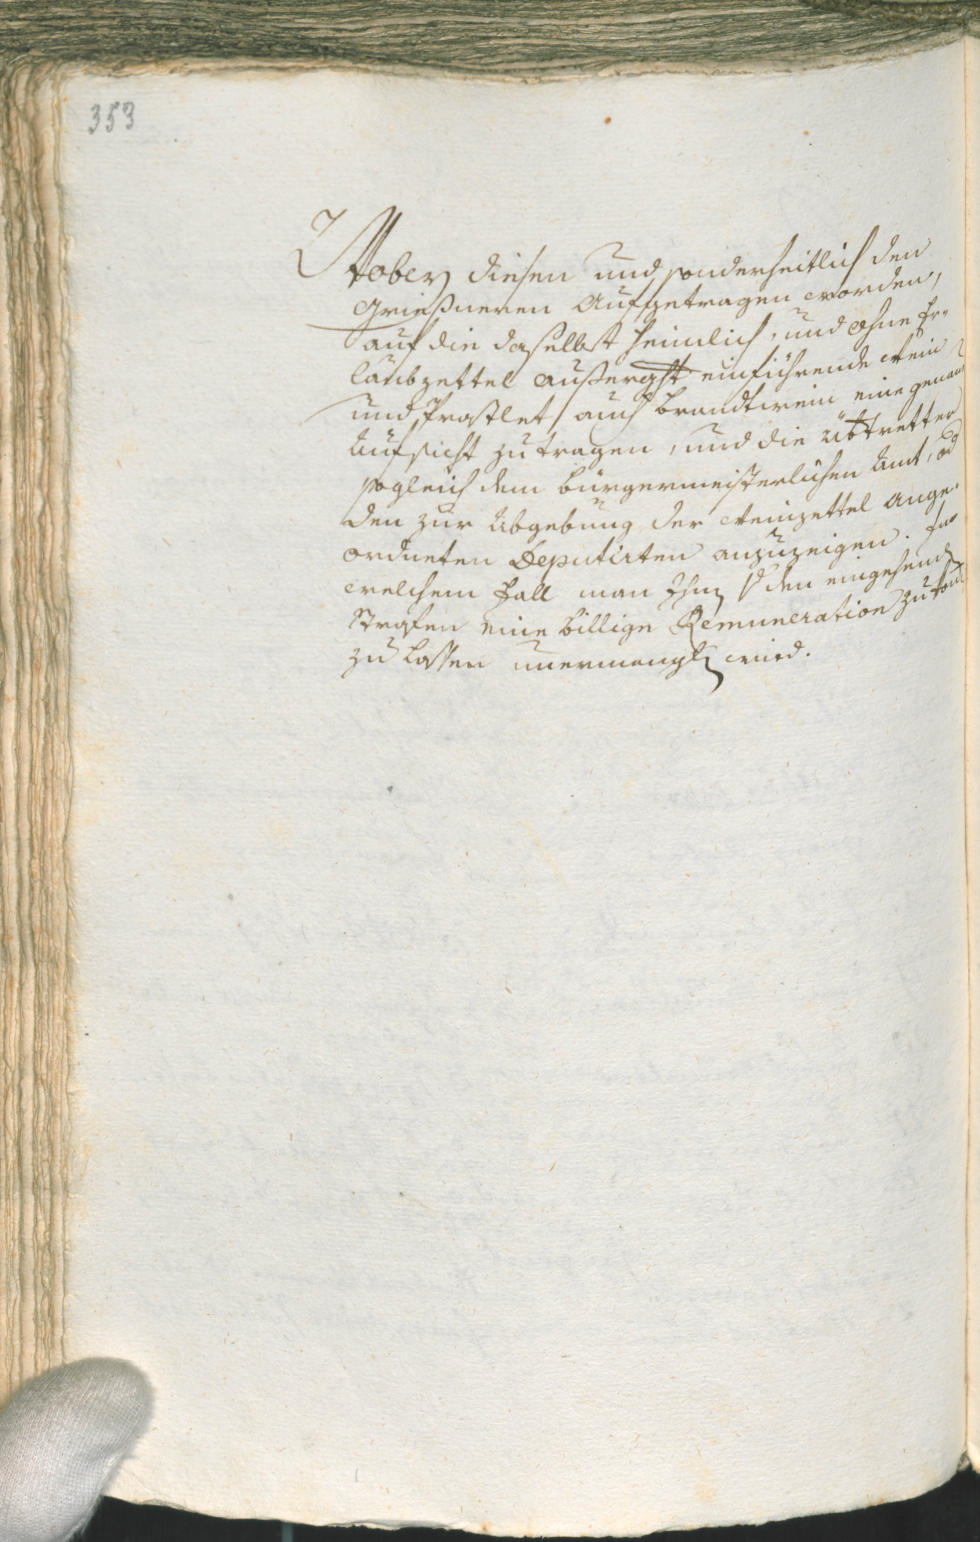 353
Wobey diesen und sonderheitlich den
Grießneren Aufgetragen worden,
auf die daselbst heimlich, und ohne Er¬
laubzettel außeracht einführende Wein
und Praslet, auch brandtwein eine genaue
Aufsicht zu tragen, und die Übtretter
sogleich dem burgermeisterlichen Amt, od
den zur Abgebung der Weinzettel ange¬
ordneten Deputirten anzuzeigen. In¬
welchem Fall man Ihm den eingehend
Strafen eine billige Remuneration zu
zu lassen unermanglen wird.